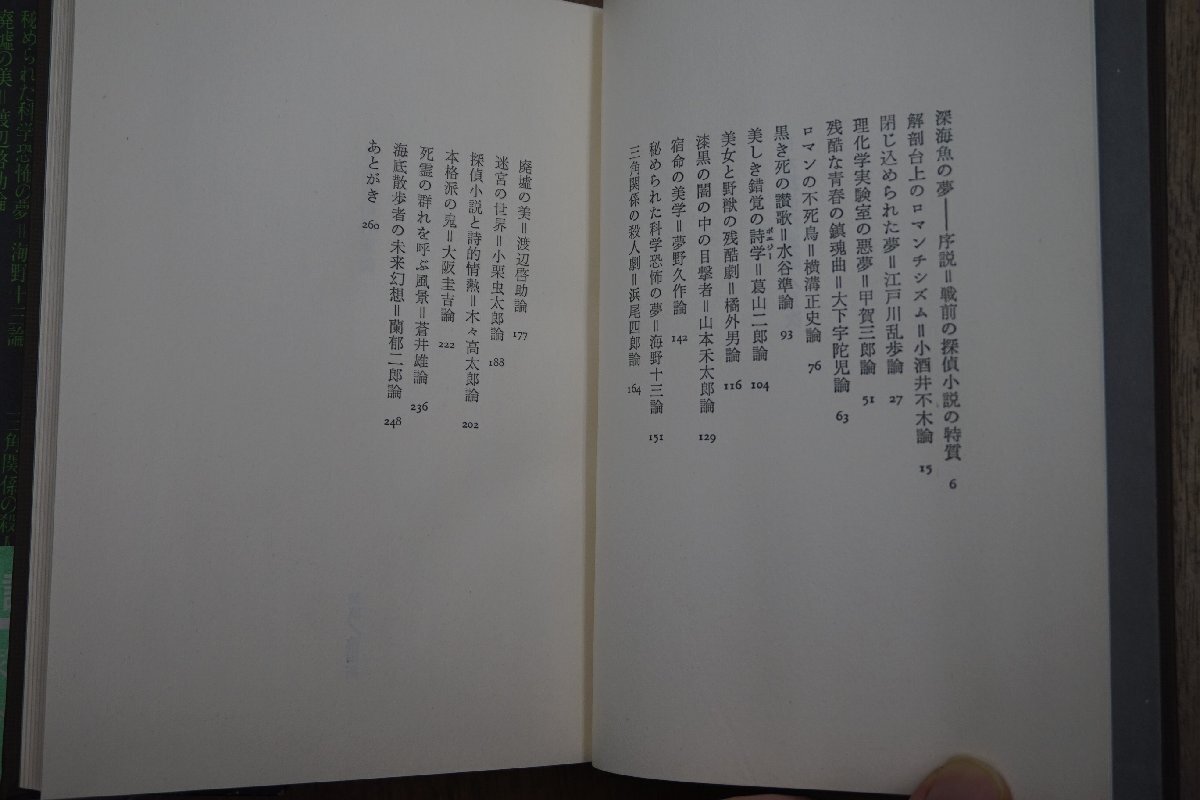 深海魚の夢――序説＝戦前の探偵小説の特質 6
解剖台上のロマンチシズム＝小酒井不木論 15
閉じ込められた夢＝江戸川乱歩論 27
理化学実験室の悪夢＝甲賀三郎論 51
残酷な青春の鎮魂曲＝大下宇陀児論 63
ロマンの不死鳥＝横溝正史論 76
黒き死の讃歌＝水谷準論 93
美しき錯覚の詩学＝葛山二郎論 104
ポエジー
美女と野獣の残酷劇＝橘外男論 116
漆黒の闇の中の目撃者＝山本禾太郎論 129
宿命の美学＝夢野久作論 142
秘められた科学恐怖の夢＝海野十三論 151
三角関係の殺人劇＝浜尾四郎論 164
廃墟の美＝渡辺啓助論 177
迷宮の世界＝小栗虫太郎論 188
探偵小説と詩的情熱＝木々高太郎論 202
本格派の鬼＝大阪圭吉論 222
死霊の群れを呼ぶ風景＝蒼井雄論 236
海底散歩者の未来幻想＝蘭郁二郎論 248
あとがき 260
秘められた科学恐怖の夢＝海野十三論 三角関係の殺人
廃墟の美＝渡辺啓助論